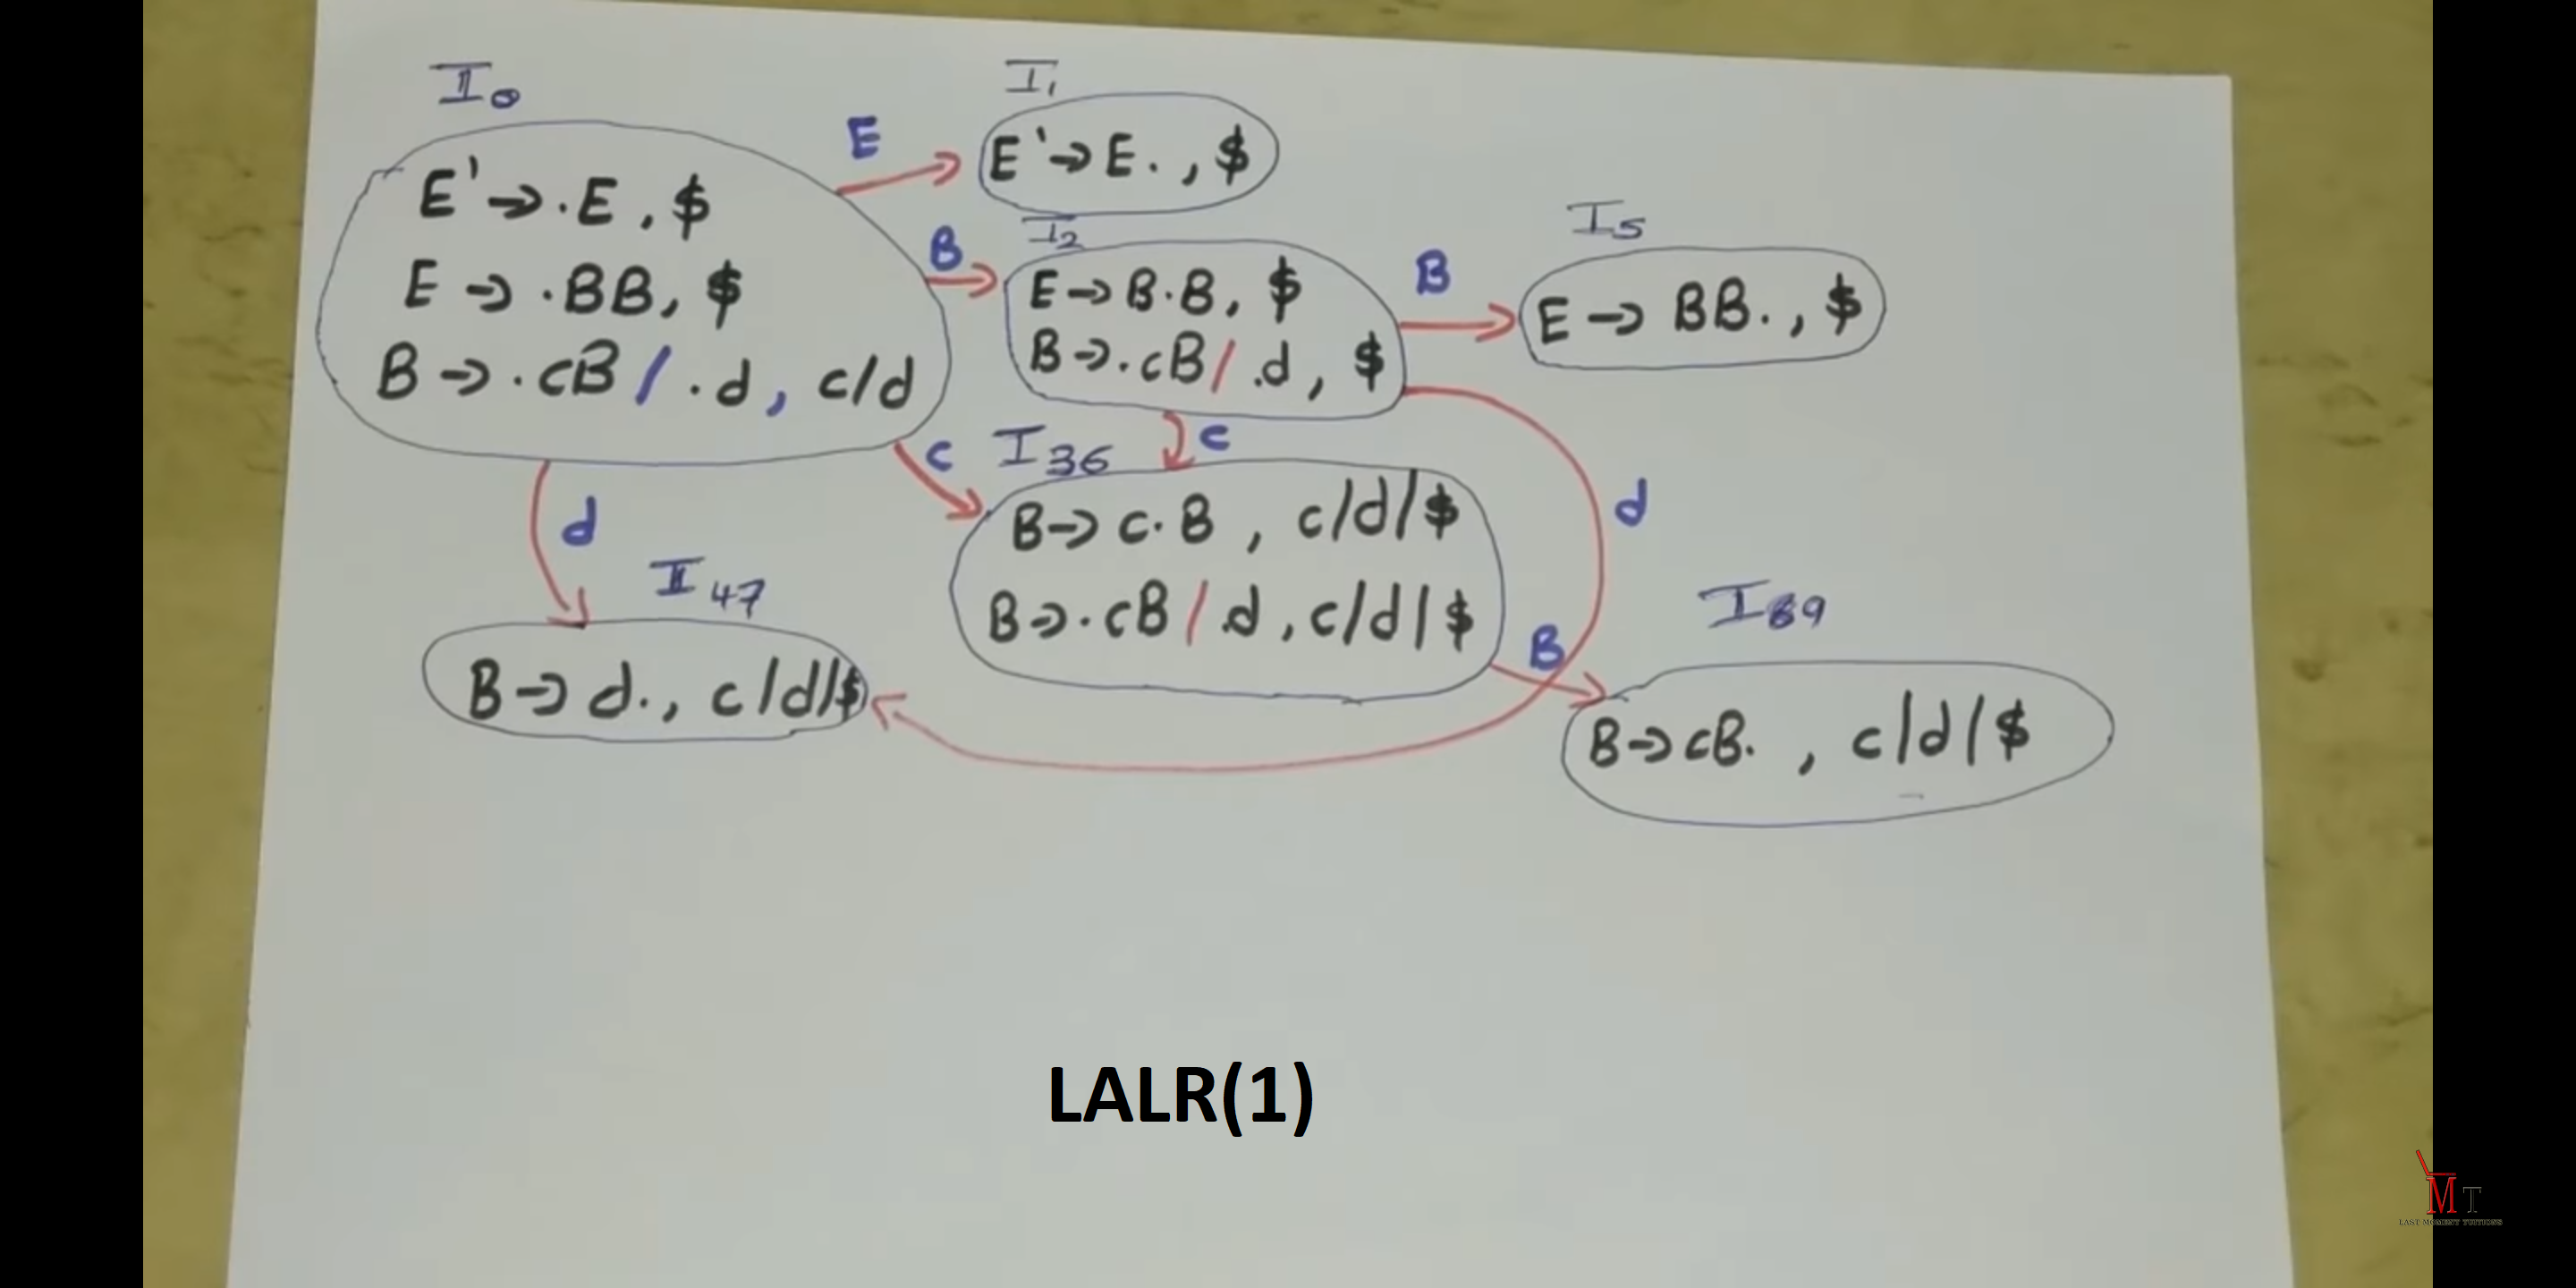 I0
E' → .E , $
E → .BB, $
B → .cB / .d , c/d
E
I1
E' → E. , $
B
I2
E → B.B, $
B → .cB / .d , $
B
I5
E → BB. , $
c
c
I36
B → c.B , c/d/$
B → .cB / .d , c/d/$
d
d
I47
B → d. , c/d/$
B
I89
B → cB. , c/d/$
LALR(1)
MT
LAST MOMENT TUITIONS